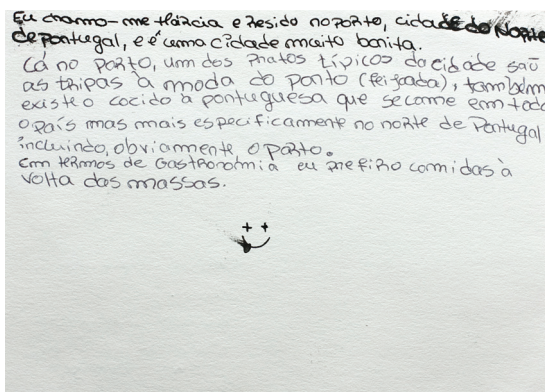 Eu chamo-me Márcia e Resido no Porto, cidade do Norte
de Portugal, e é uma cidade muito bonita.
Cá no Porto, um dos Pratos típicos da cidade são
as tripas à moda do porto (feijoada), também
existe o cocido à portuguesa que se come em todo
o país mas mais especificamente no norte de Portugal
incluindo, obviamente o porto.
Em termos de Gastronomia eu prefiro comidas à
volta das massas.